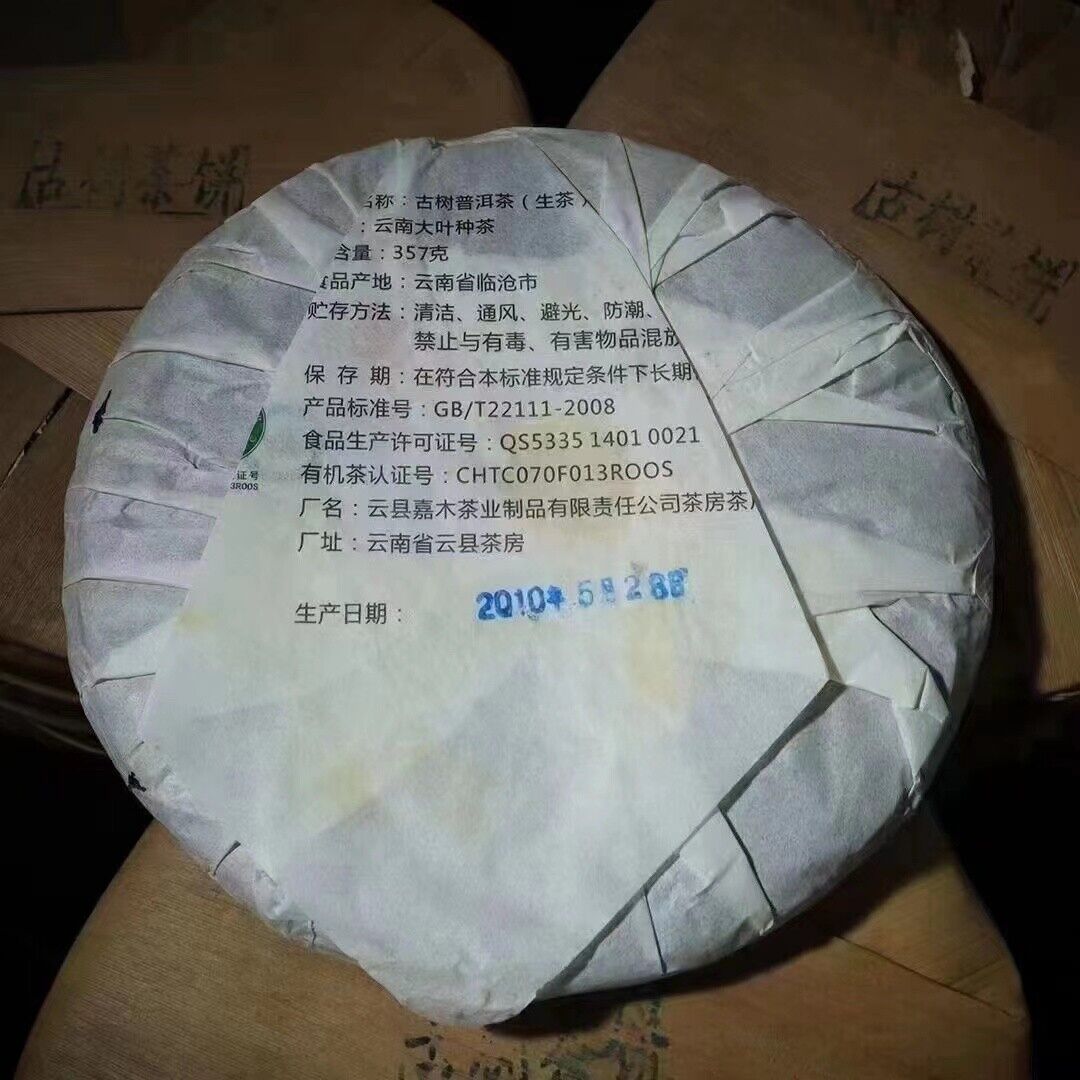 古树茶饼
古树
名称：古树普洱茶（生茶）
：云南大叶种茶
含量：357克
食品产地：云南省临沧市
贮存方法：清洁、通风、避光、防潮、
禁止与有毒、有害物品混放
保 存 期：在符合本标准规定条件下长期
产品标准号：GB/T22111-2008
食品生产许可证号：QS5335 1401 0021
有机茶认证号：CHTC070F013ROOS
证号
3ROOS
厂名：云县嘉木茶业制品有限责任公司茶房茶厂
厂址：云南省云县茶房
生产日期：2010年